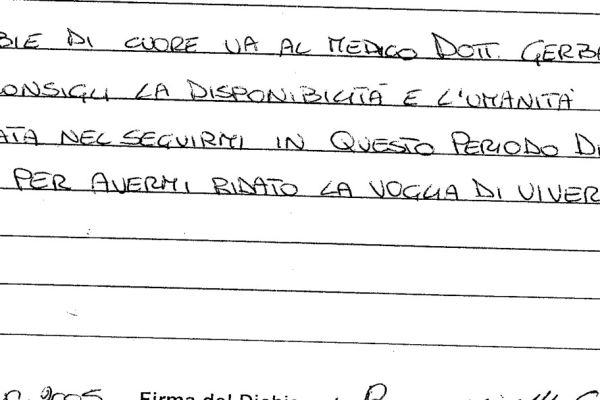 BIE DI CUORE VA AL MEDICO DOTT. GERB
ONSIGLI LA DISPONIBILITÀ E L'UMANITÀ
ATA NEL SEGUIRMI IN QUESTO PERIODO DI
PER AVERMI RIDATO LA VOGLIA DI VIVER
2005 Firma del Dichia